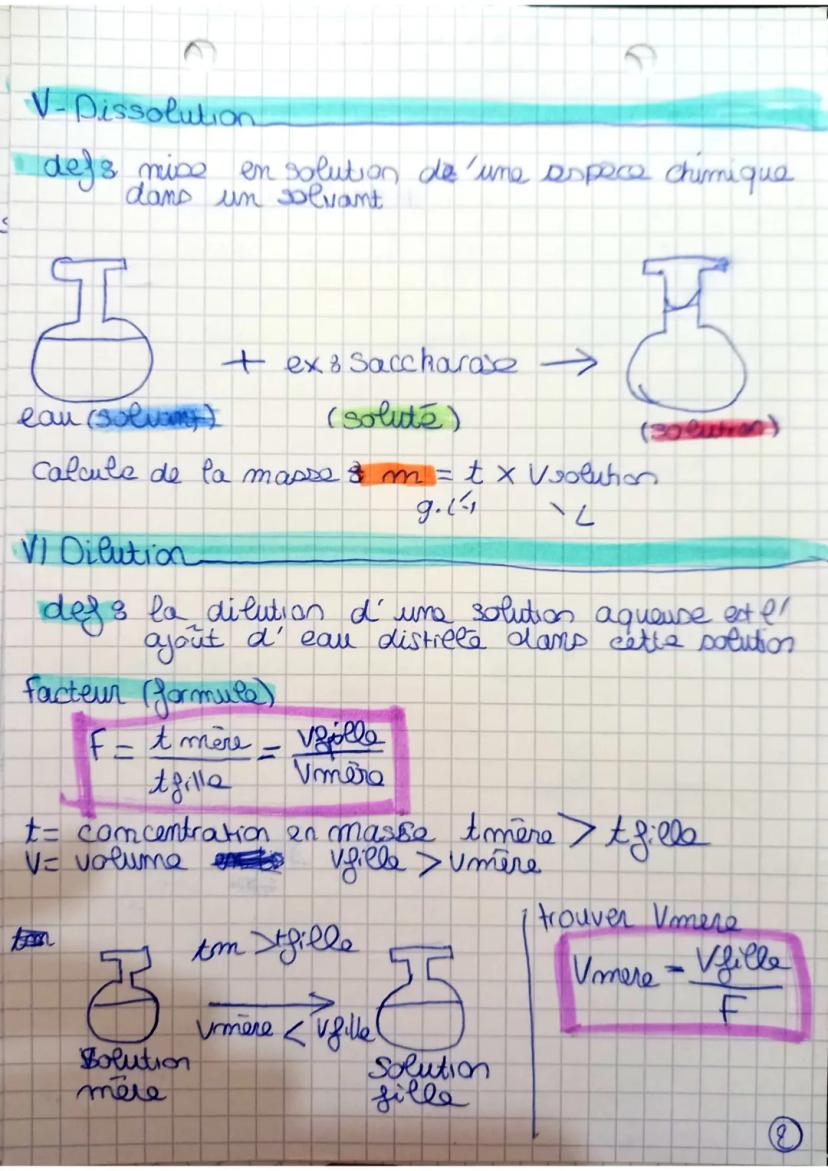 V-Dissolution
def: mise en solution de'une espece chimique
dans un solvant
+ ex: Saccharose →
eau (solvant) (soluté) (solution)
Calcule de la masse : m = t x Vsolution
g.L-1 L
VI Dilution
def: la dilution d'une solution aqueuse est l'
ajoût d'eau distillé dans cette solution
facteur (formule)
F = t mère / t fille = Vfille / Vmère
t = concentration en masse tmère > tfille
V = volume Vfille > Vmère
tm > tfille
Vmère < Vfille
Solution mère
Solution fille
trouver Vmere
Vmere = Vfille / F
2